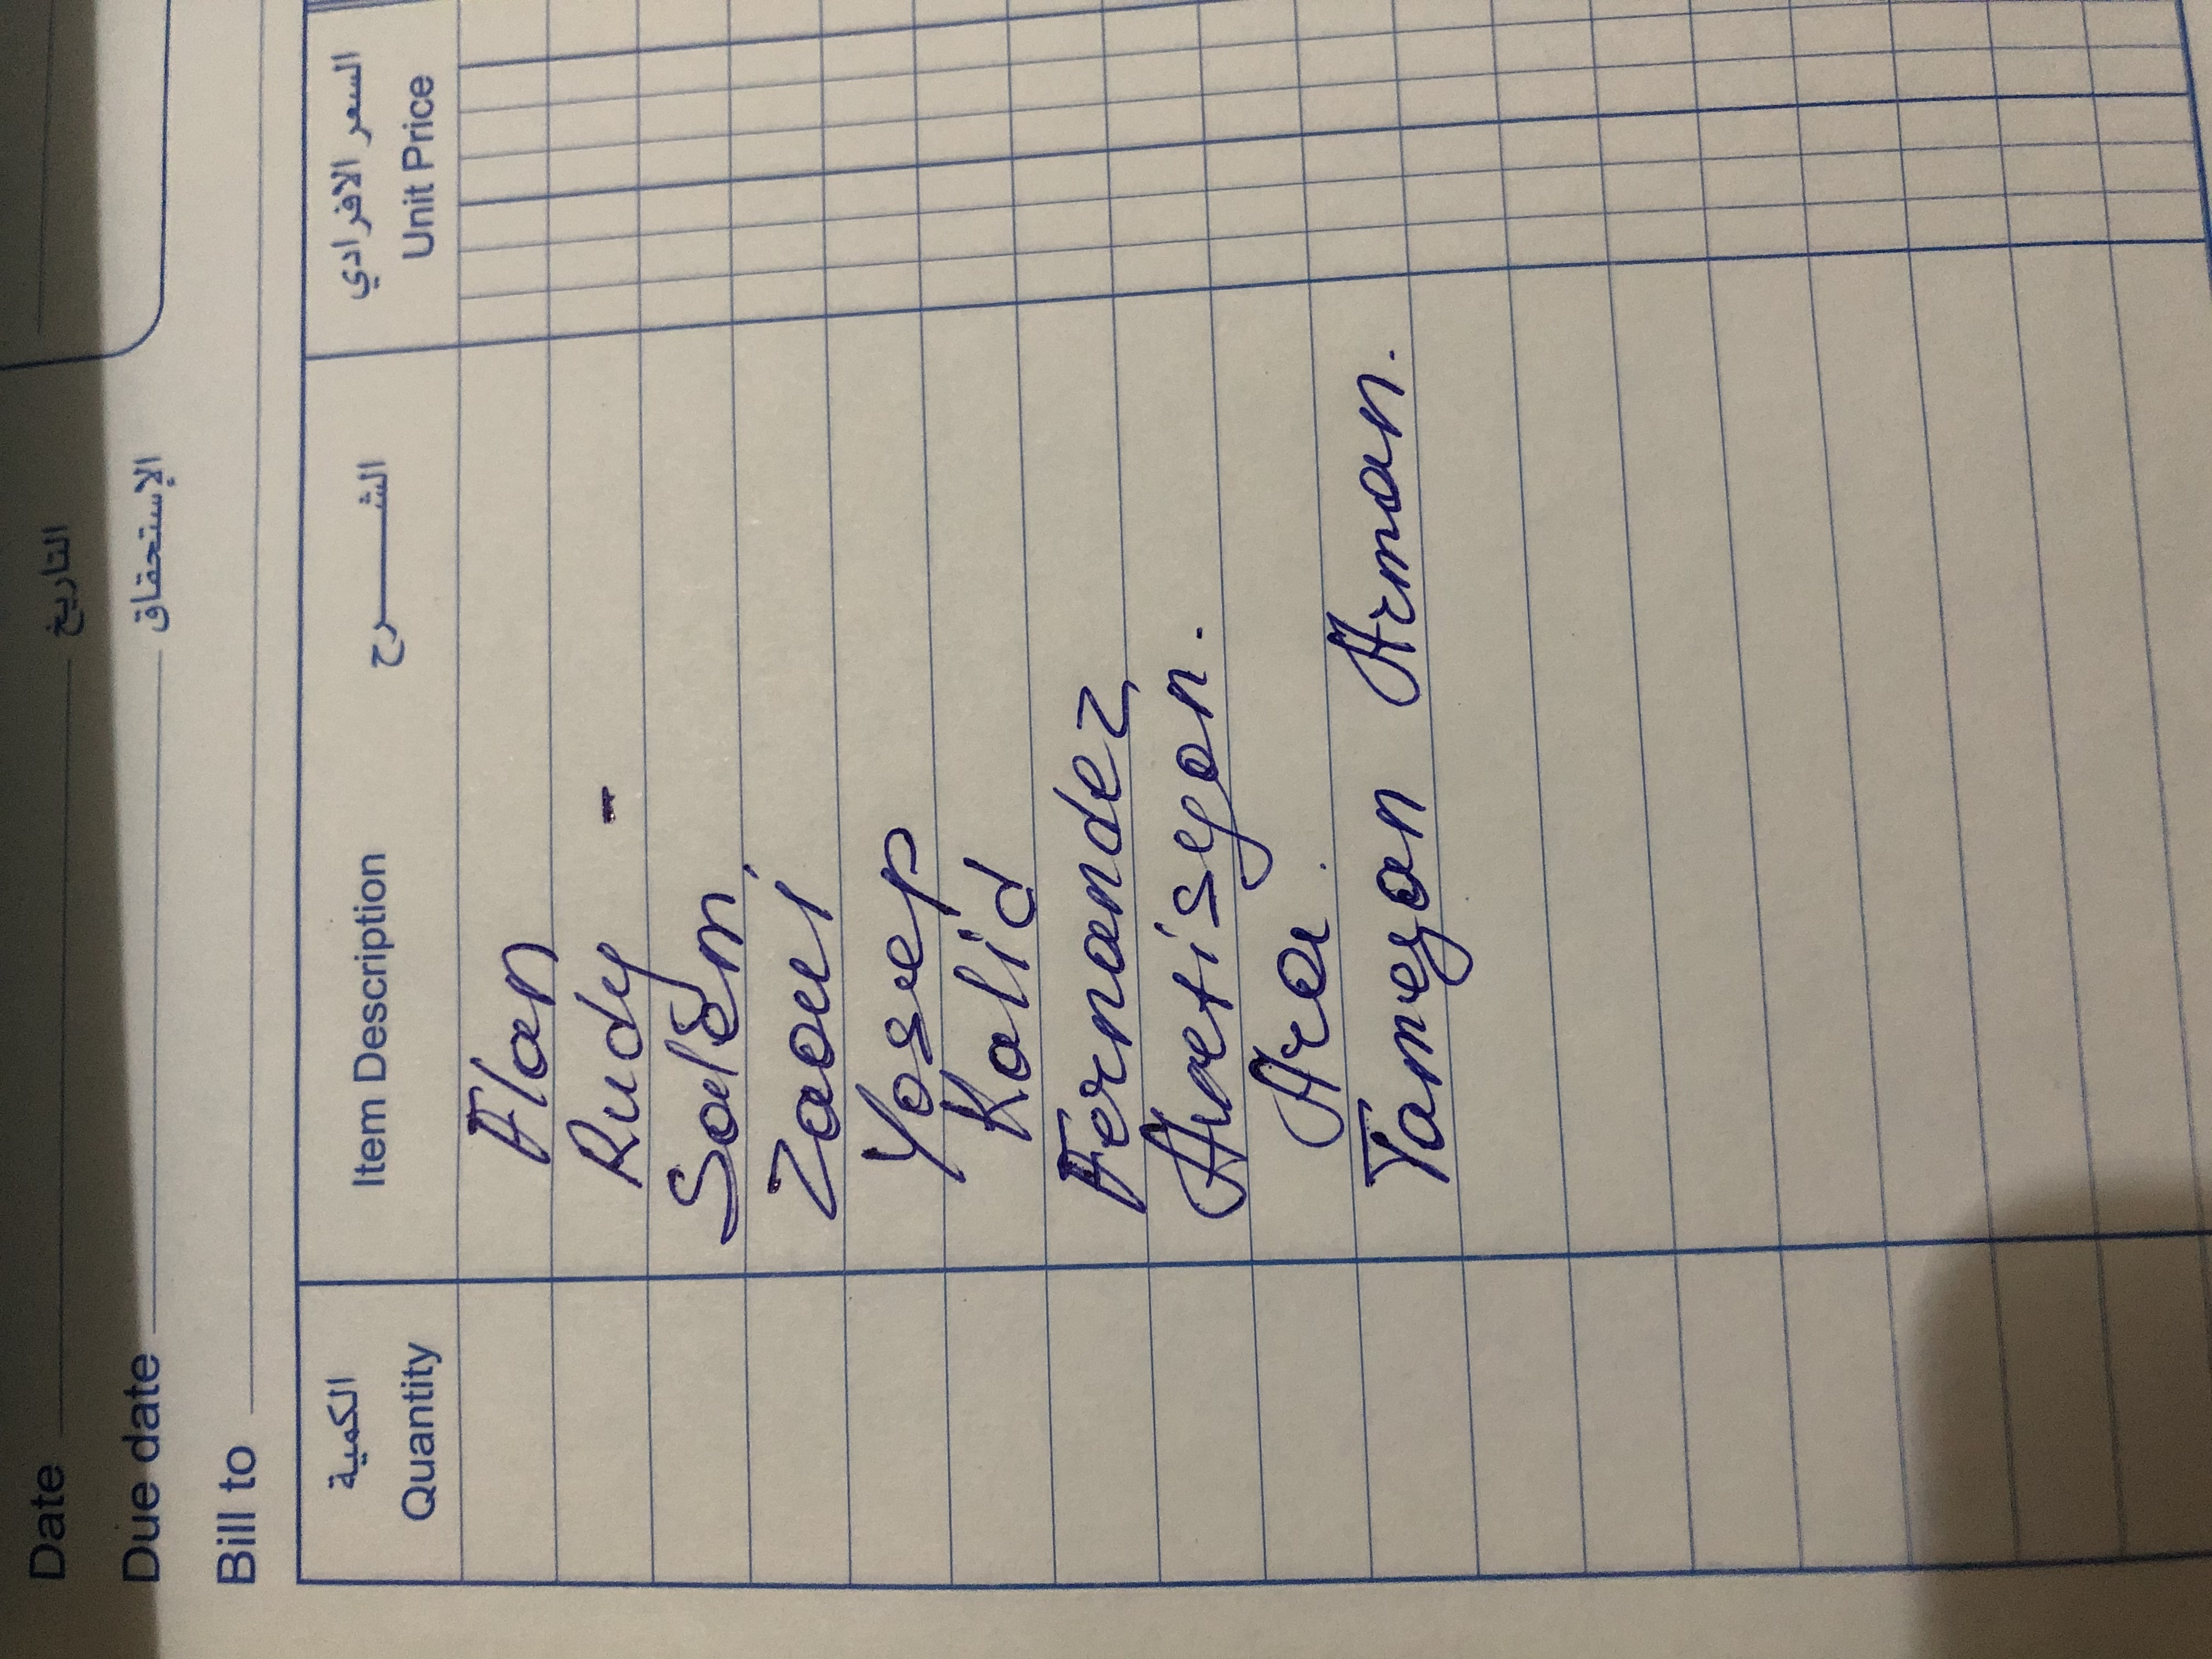 Date التاريخ
Due date الإستحقاق
Bill to
الكمية Quantity
Item Description الشــــرح
السعر الافرادي Unit Price
Flan
Rudy -
Salem,
Zaoui
Yosep
Kalid
Fernandez
Avetisyan.
Ara.
Tameyan Arman.